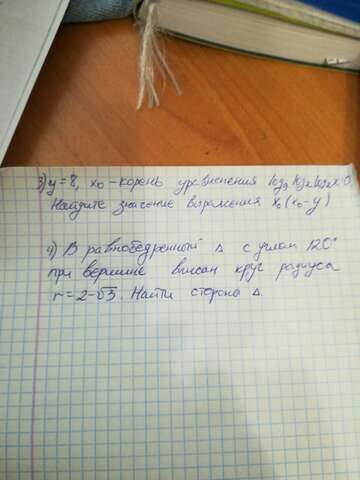 3) y = 8, x₀ - корень уравнения log₃ log₂ log₂ x = 0
Найдите значение выражения x₀(x₀-y)
4) В равнобедренный Δ с углом 120°
при вершине вписан круг радиуса
r = 2-√3. Найти стороны Δ.